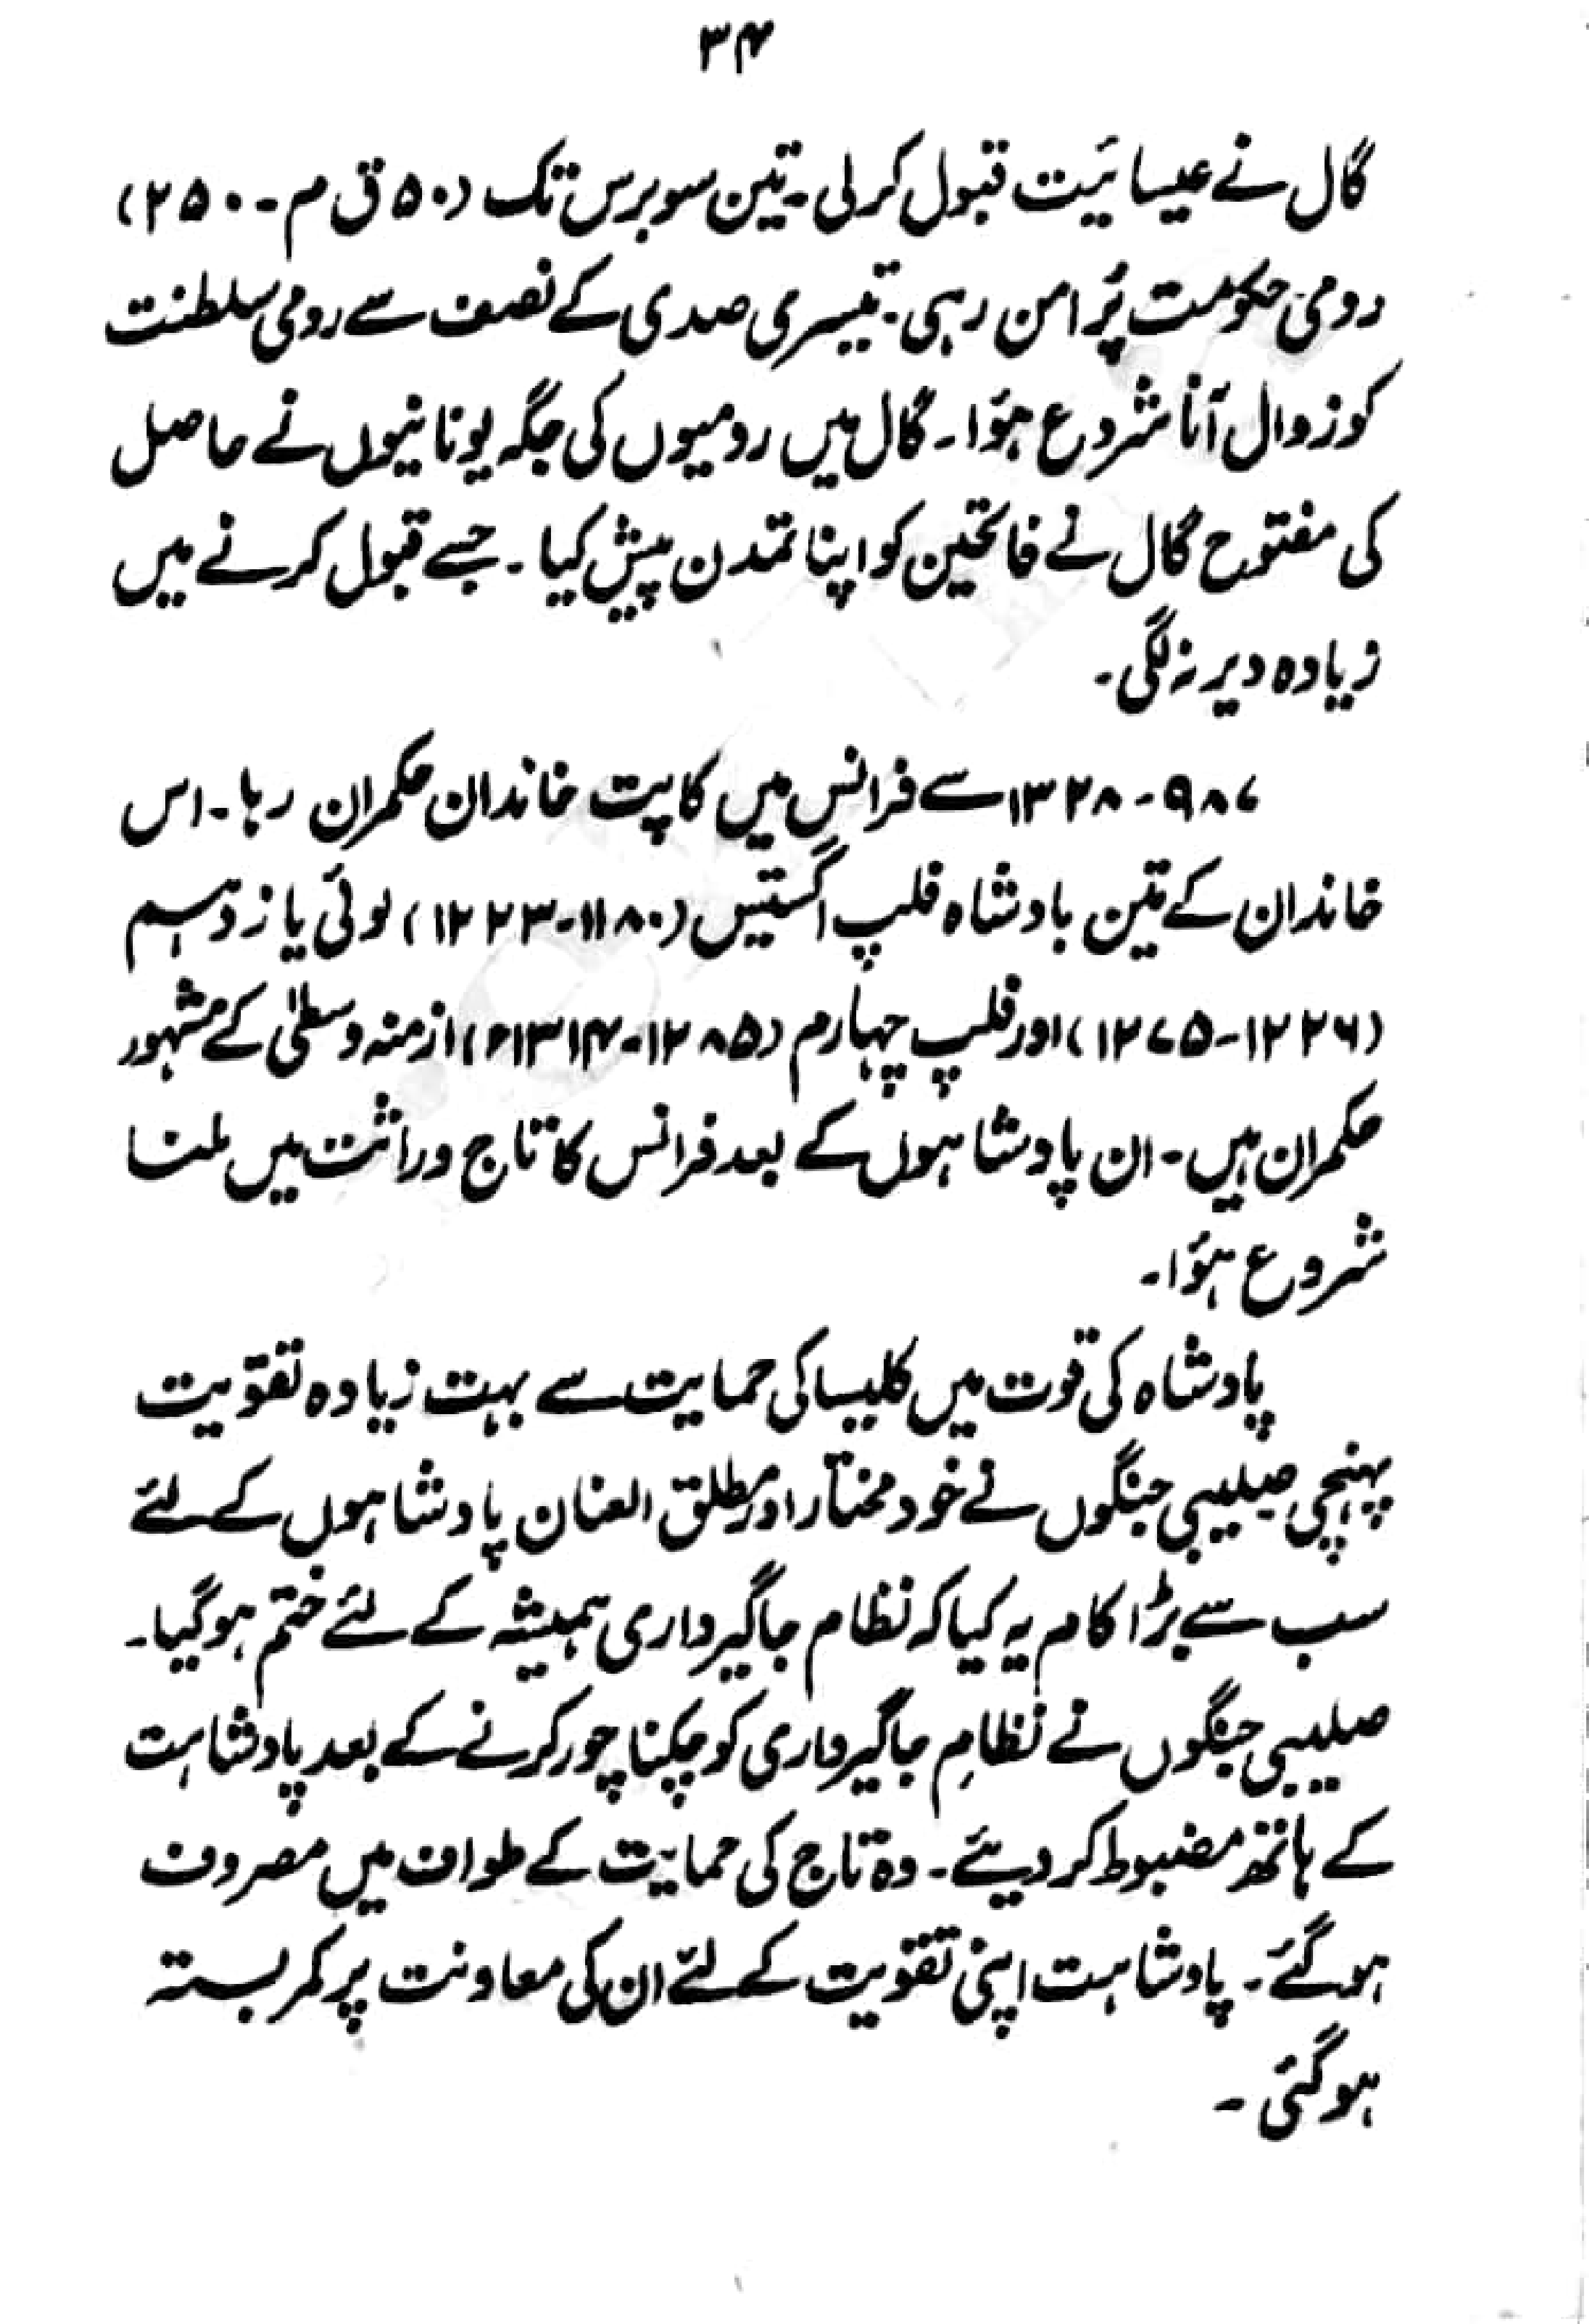 ۳۴
گال نے عیسائیت قبول کرلی۔ تین سو برس تک (۵۰ ق م۔ ۲۵۰)
رومی حکومت پُرامن رہی۔ تیسری صدی کے نصف سے رومی سلطنت
کو زوال آنا شروع ہؤا۔ گال میں رومیوں کی جگہ یونانیوں نے حاصل
کی مفتوح گال نے فاتحین کو اپنا تمدن پیش کیا۔ جسے قبول کرنے میں
زیادہ دیر نہ لگی۔
۹۸۷۔۱۳۲۸ سے فرانس میں کاپت خاندان حکمران رہا۔ اس
خاندان کے تین بادشاہ فلپ آگستیس (۱۱۸۰۔۱۲۲۳) لوئی یازدہم
(۱۲۲۶۔۱۲۷۵) اور فلپ چہارم (۱۲۸۵۔۱۳۱۴ء) ازمنہ وسطیٰ کے مشہور
حکمران ہیں۔ ان پادشاہوں کے بعد فرانس کا تاج وراثت میں ملنا
شروع ہؤا۔
پادشاہ کی قوت میں کلیسا کی حمایت سے بہت زیادہ تقوّیت
پہنچی صلیبی جنگوں نے خود مختار اور مطلق العنان پادشاہوں کے لئے
سب سے بڑا کام یہ کیا کہ نظام جاگیرداری ہمیشہ کے لئے ختم ہو گیا۔
صلیبی جنگوں نے نظامِ جاگیرداری کو چکنا چور کرنے کے بعد پادشاہت
کے ہاتھ مضبوط کر دیئے۔ وہ تاج کی حمایت کے طواف میں مصروف
ہو گئے۔ پادشاہت اپنی تقویت کے لئے ان کی معاونت پر کمر بستہ
ہو گئی۔